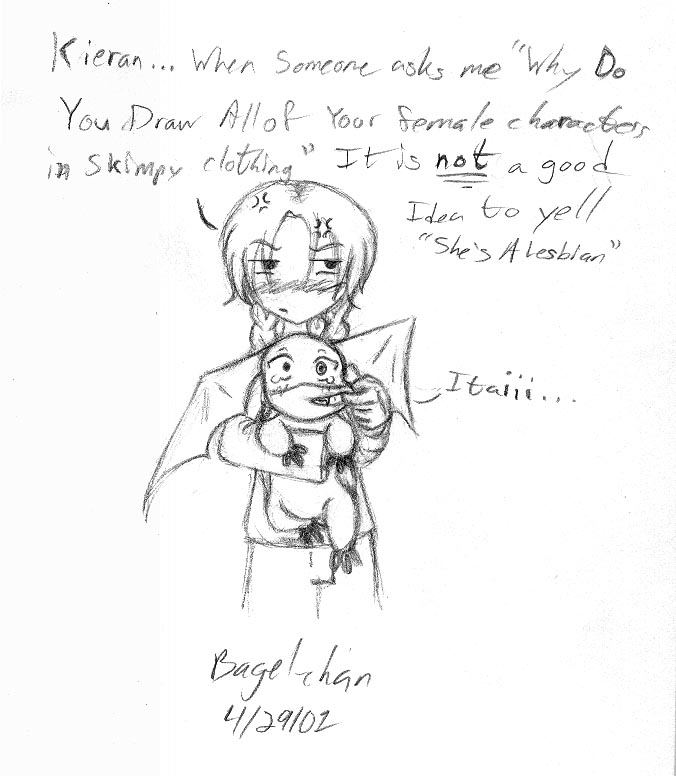 Kieran... When Someone asks me "Why Do
You Draw All of Your female characters
in Skimpy clothing" It is not a good
Idea to yell
"She's A lesbian"
Itaiii...
Bagel-chan
4/29/02